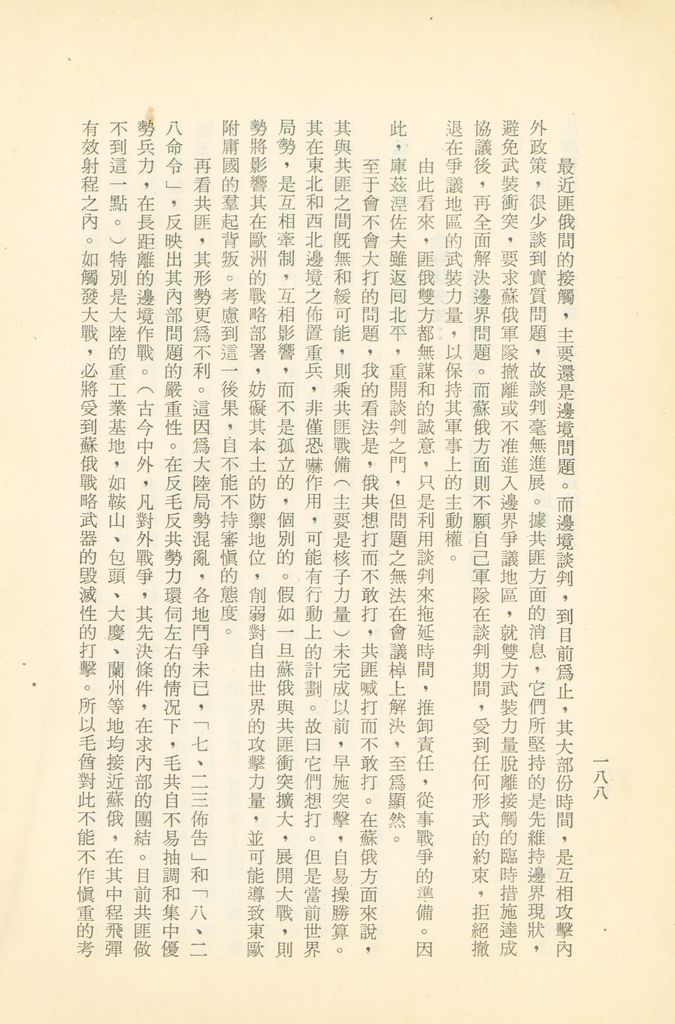 一八八
最近匪俄間的接觸，主要還是邊境問題。而邊境談判，到目前爲止，其大部份時間，是互相攻擊內
外政策，很少談到實質問題，故談判毫無進展。據共匪方面的消息，它們所堅持的是先維持邊界現狀，
避免武裝衝突，要求蘇俄軍隊撤離或不准進入邊界爭議地區，就雙方武裝力量脫離接觸的臨時措施達成
協議後，再全面解決邊界問題。而蘇俄方面則不願自己軍隊在談判期間，受到任何形式的約束，拒絕撤
退在爭議地區的武裝力量，以保持其軍事上的主動權。
由此看來，匪俄雙方都無謀和的誠意，只是利用談判來拖延時間，推卸責任，從事戰爭的準備。因
此，庫茲湼佐夫雖返囘北平，重開談判之門，但問題之無法在會議棹上解決，至爲顯然。
至于會不會大打的問題，我的看法是，俄共想打而不敢打，共匪喊打而不敢打。在蘇俄方面來說，
其與共匪之間旣無和緩可能，則乘共匪戰備（主要是核子力量）未完成以前，早施突擊，自易操勝算。
其在東北和西北邊境之佈置重兵，非僅恐嚇作用，可能有行動上的計劃。故曰它們想打。但是當前世界
局勢，是互相牽制，互相影響，而不是孤立的，個別的。假如一旦蘇俄與共匪衝突擴大，展開大戰，則
勢將影響其在歐洲的戰略部署，妨礙其本土的防禦地位，削弱對自由世界的攻擊力量，並可能導致東歐
附庸國的羣起背叛。考慮到這一後果，自不能不持審愼的態度。
再看共匪，其形勢更爲不利。這因爲大陸局勢混亂，各地鬥爭未已，「七、二三佈告」和「八、二
八命令」，反映出其內部問題的嚴重性。在反毛反共勢力環伺左右的情況下，毛共自不易抽調和集中優
勢兵力，在長距離的邊境作戰。（古今中外，凡對外戰爭，其先決條件，在求內部的團結。目前共匪做
不到這一點。）特別是大陸的重工業基地，如鞍山、包頭、大慶、蘭州等地均接近蘇俄，在其中程飛彈
有效射程之內。如觸發大戰，必將受到蘇俄戰略武器的毀滅性的打擊。所以毛酋對此不能不作愼重的考